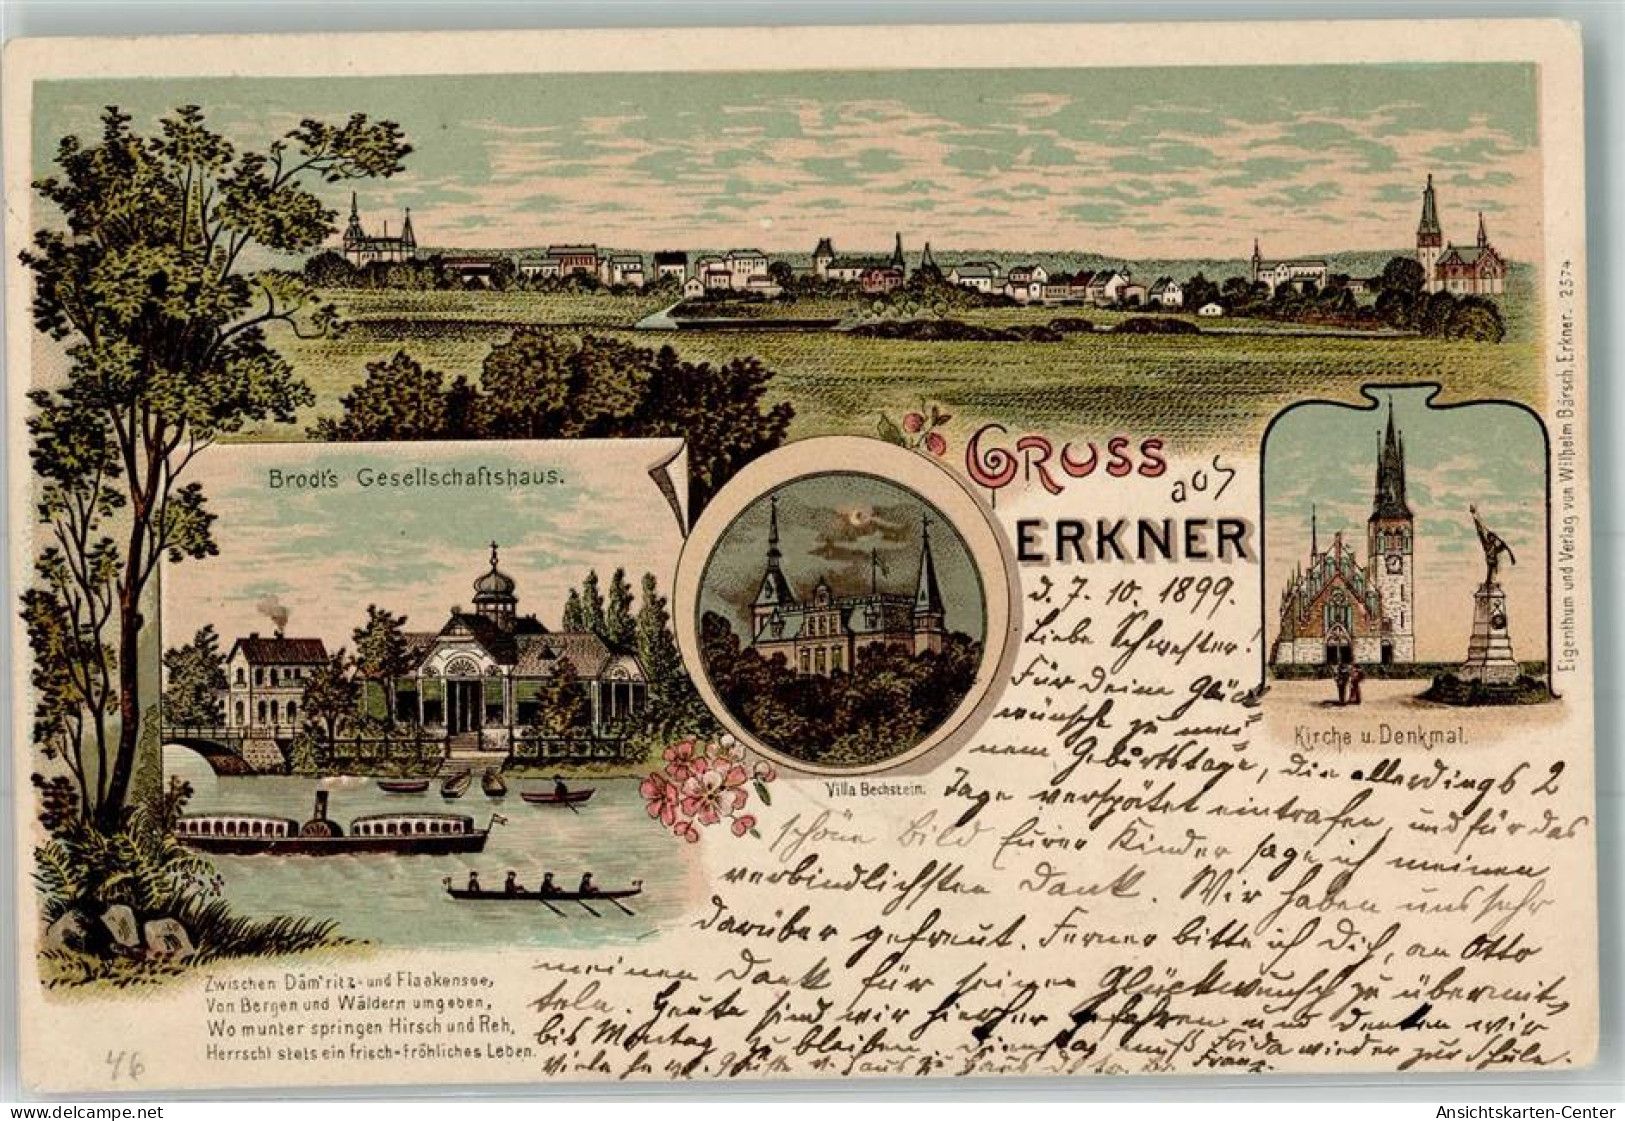 Brodt's Gesellschaftshaus.
GRUSS
aus
ERKNER
Villa Bechstein.
Kirche u. Denkmal.
Eigenthum und Verlag von Wilhelm Bärsch, Erkner. 2374
Zwischen Däm'ritz- und Flaakensee,
Von Bergen und Wäldern umgeben,
Wo munter springen Hirsch und Reh,
Herrscht stets ein frisch-fröhliches Leben.
46
d. 7. 10. 1899.
Liebe Schwester!
Für Deine Glück
wünsche zu mei
nem Geburtstage, die allerdings 2
Tage verspätet eintrafen, und für das
schöne Bild Eurer Kinder sage ich meinen
verbindlichsten Dank. Wir haben uns sehr
darüber gefreut. Ferner bitte ich Dich, an Otto
meinen Dank für seinen Glückwunsch zu übermit
teln. Heute sind wir hierher gefahren und denken wir
bis Montag zu bleiben, Dienstag muß Frida wieder zur Schule.
Viele Grüße v. Haus zu Haus Franz.
Ansichtskarten-Center